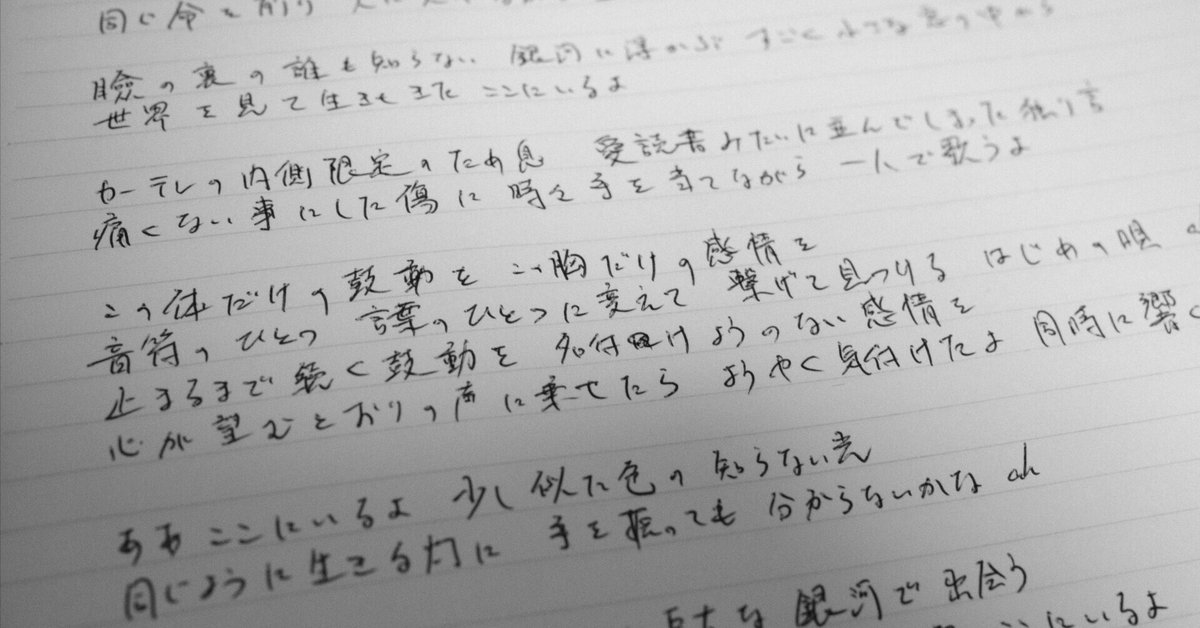 同じ命を削り
瞼の裏の誰も知らない 銀河に浮かぶ すごく小さな窓の中から
世界を見て生きてきた ここにいるよ
カーテンの内側限定のため息 愛読書みたいに並んでしまった独り言
痛くない事にした傷に 時々手を当てながら 一人で歌うよ
この体だけの鼓動を この胸だけの感情を
音符のひとつ 言葉のひとつに変えて 繋げて見つける はじめの唄
止まるまで続く鼓動を 名付けようのない感情を
心が望むとおりの声に乗せたら ようやく気付けたよ 同時に響く
ああ ここにいるよ 少し似た色の 知らない光
同じように生きる灯に 手を振っても 分からないかな ah
巨大な 銀河で出会う
ここにいるよ